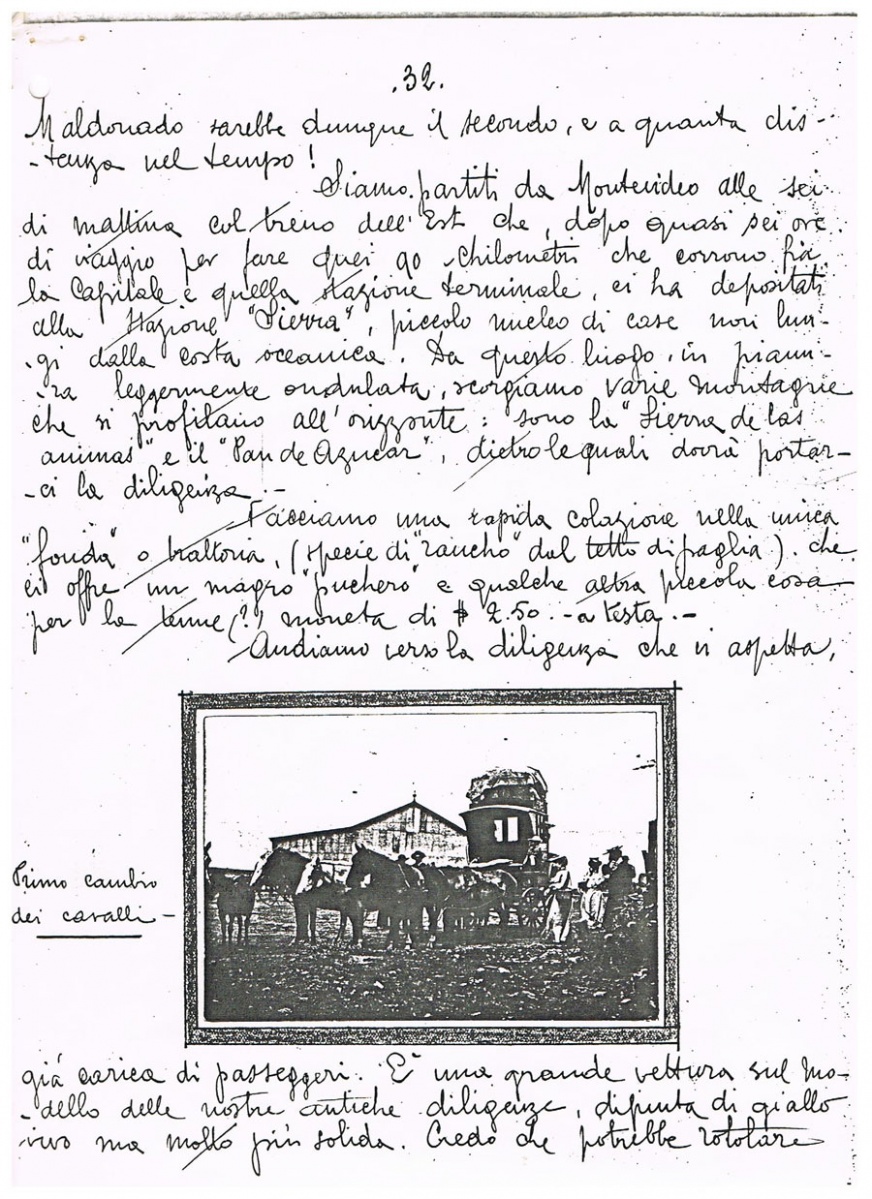 .32.
Maldonado sarebbe dunque il secondo, e a quanta dis-
-tenza nel tempo!
Siamo partiti da Montevideo alle sei
di mattina col treno dell'Est che, dopo quasi sei ore
di viaggio per fare quei 90 chilometri che corrono fra
la Capitale e quella stazione terminale, ci ha depositati
alla Stazione "Sierra", piccolo nucleo di case non lun-
-gi dalla costa oceanica. Da questo luogo, in pianu-
-ra leggermente ondulata, scorgiamo varie montagne
che si profilano all'orizzonte: sono la "Sierra de las
animas" e il "Pan de Azucar", dietro le quali dovrà portar-
-ci la diligenza.-
Facciamo una rapida colazione nella unica
"fonda" o trattoria, (specie di "rancho" dal tetto di paglia) che
ci offre un magro "puchero" e qualche altra piccola cosa
per la tenue (?) moneta di $ 2.50.- a testa.-
Andiamo verso la diligenza che vi aspetta,
Primo cambio
dei cavalli -
già carica di passeggeri. E' una grande vettura sul mo-
-dello delle nostre antiche diligenze, dipinta di giallo
vivo ma molto più solida. Credo che potrebbe rotolare